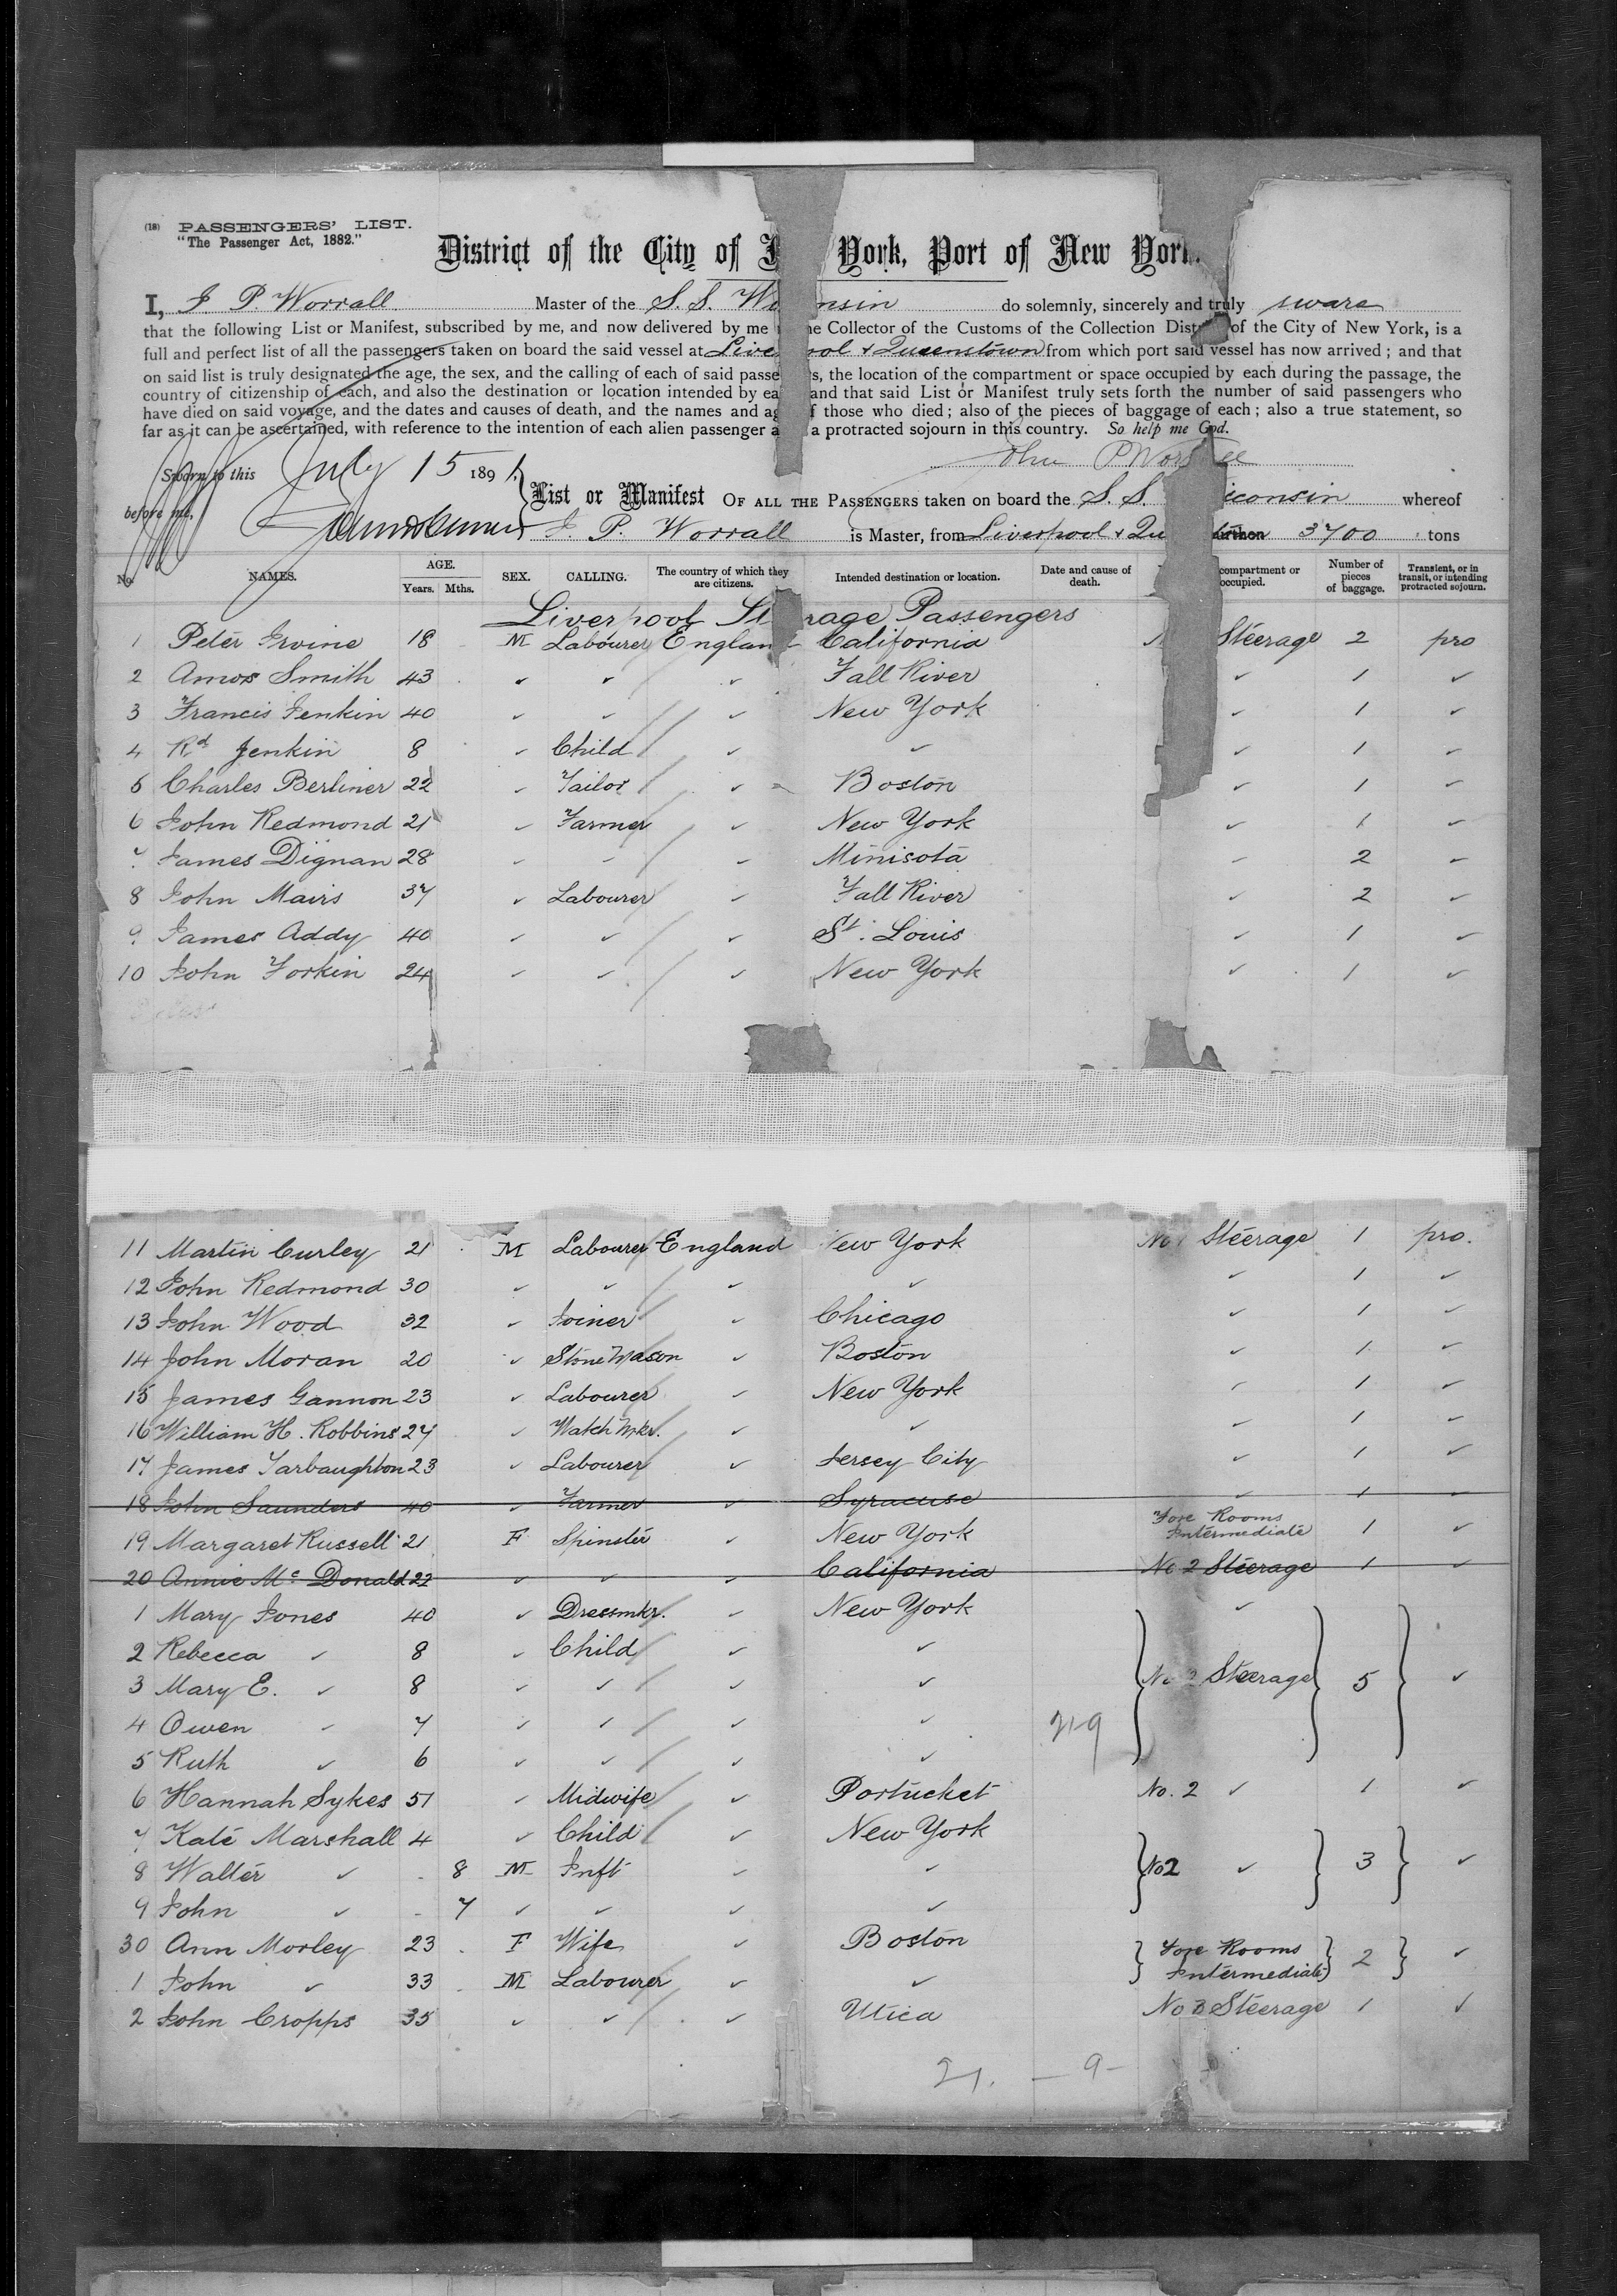 (18) PASSENGERS' LIST.
"The Passenger Act, 1882."
District of the City of York, Port of New York.
I, J. P. Worrall Master of the S. S. nsin do solemnly, sincerely and truly sware
that the following List or Manifest, subscribed by me, and now delivered by me Collector of the Customs of the Collection of the City of New York, is a
full and perfect list of all the passengers taken on board the said vessel at Liverpool & Queenstown from which port said vessel has now arrived; and that
on said list is truly designated the age, the sex, and the calling of each of said passe s, the location of the compartment or space occupied by each during the passage, the
country of citizenship of each, and also the destination or location intended by ea and that said List or Manifest truly sets forth the number of said passengers who
have died on said voyage, and the dates and causes of death, and the names and ag those who died; also of the pieces of baggage of each; also a true statement, so
far as it can be ascertained, with reference to the intention of each alien passenger a a protracted sojourn in this country. So help me God.
John P Worrall
Sworn to this July 15 1891
before me,
List or Manifest OF ALL THE PASSENGERS taken on board the S. S. isconsin whereof
J. P. Worrall is Master, from Liverpool & Qu burthen 3700 tons
No. NAMES. AGE. Years. Mths. SEX. CALLING. The country of which they are citizens. Intended destination or location. Date and cause of death. compartment or occupied. Number of pieces of baggage. Transient, or in transit, or intending protracted sojourn.
Liverpool Steerage Passengers
1 Peter Irvine 18 M Labourer England California Steerage 2 pro
2 Amos Smith 43 ✓ ✓ ✓ Fall River ✓ 1 ✓
3 Francis Jenkin 40 ✓ ✓ ✓ New York ✓ 1 ✓
4 Rd Jenkin 8 ✓ Child ✓ ✓ ✓ 1 ✓
5 Charles Berliner 22 ✓ Tailor ✓ Boston ✓ 1 ✓
6 John Redmond 21 ✓ Farmer ✓ New York ✓ 1 ✓
7 James Dignan 28 ✓ ✓ ✓ Minisota ✓ 2 ✓
8 John Mairs 37 ✓ Labourer ✓ Fall River ✓ 2 ✓
9 James Addy 40 ✓ ✓ ✓ St. Louis ✓ 1 ✓
10 John Forkin 24 ✓ ✓ ✓ New York ✓ 1 ✓
11 Martin Curley 21 M Labourer England New York No 1 Steerage 1 pro.
12 John Redmond 30 ✓ ✓ ✓ ✓ ✓ 1 ✓
13 John Wood 32 ✓ Joiner ✓ Chicago ✓ 1 ✓
14 John Moran 20 ✓ Stone Mason ✓ Boston ✓ 1 ✓
15 James Gannon 23 ✓ Labourer ✓ New York ✓ 1 ✓
16 William H. Robbins 27 ✓ Watch Mkr. ✓ ✓ ✓ 1 ✓
17 James Tarbaughton 23 ✓ Labourer ✓ Jersey City ✓ 1 ✓
18 John Saunders 40 ✓ Farmer ✓ Syracuse ✓ 1 ✓
19 Margaret Russell 21 F Spinster ✓ New York Fore Rooms Intermediate 1 ✓
20 Annie Mc Donald 22 ✓ ✓ ✓ California No 2 Steerage 1 ✓
1 Mary Jones 40 ✓ Dressmkr. ✓ New York ✓
2 Rebecca ✓ 8 ✓ Child ✓ ✓
3 Mary E. ✓ 8 ✓ ✓ ✓ ✓ No Steerage 5 ✓
4 Owen ✓ 7 ✓ ✓ ✓ ✓ 21-9
5 Ruth ✓ 6 ✓ ✓ ✓ ✓
6 Hannah Sykes 51 ✓ Midwife ✓ Portucket No. 2 ✓ 1 ✓
7 Kate Marshall 4 ✓ Child ✓ New York
8 Walter ✓ 8 M Inft ✓ ✓ No 2 ✓ 3 ✓
9 John ✓ 7 ✓ ✓ ✓ ✓
30 Ann Morley 23 F Wife ✓ Boston Fore Rooms Intermediate 2 ✓
1 John ✓ 33 M Labourer ✓ ✓
2 John Cropps 35 ✓ ✓ ✓ Utica No 3 Steerage 1 ✓
21. - 9-